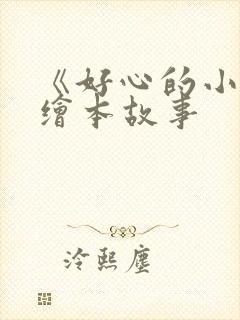 《好心的小
繪本故事
冷熙塵